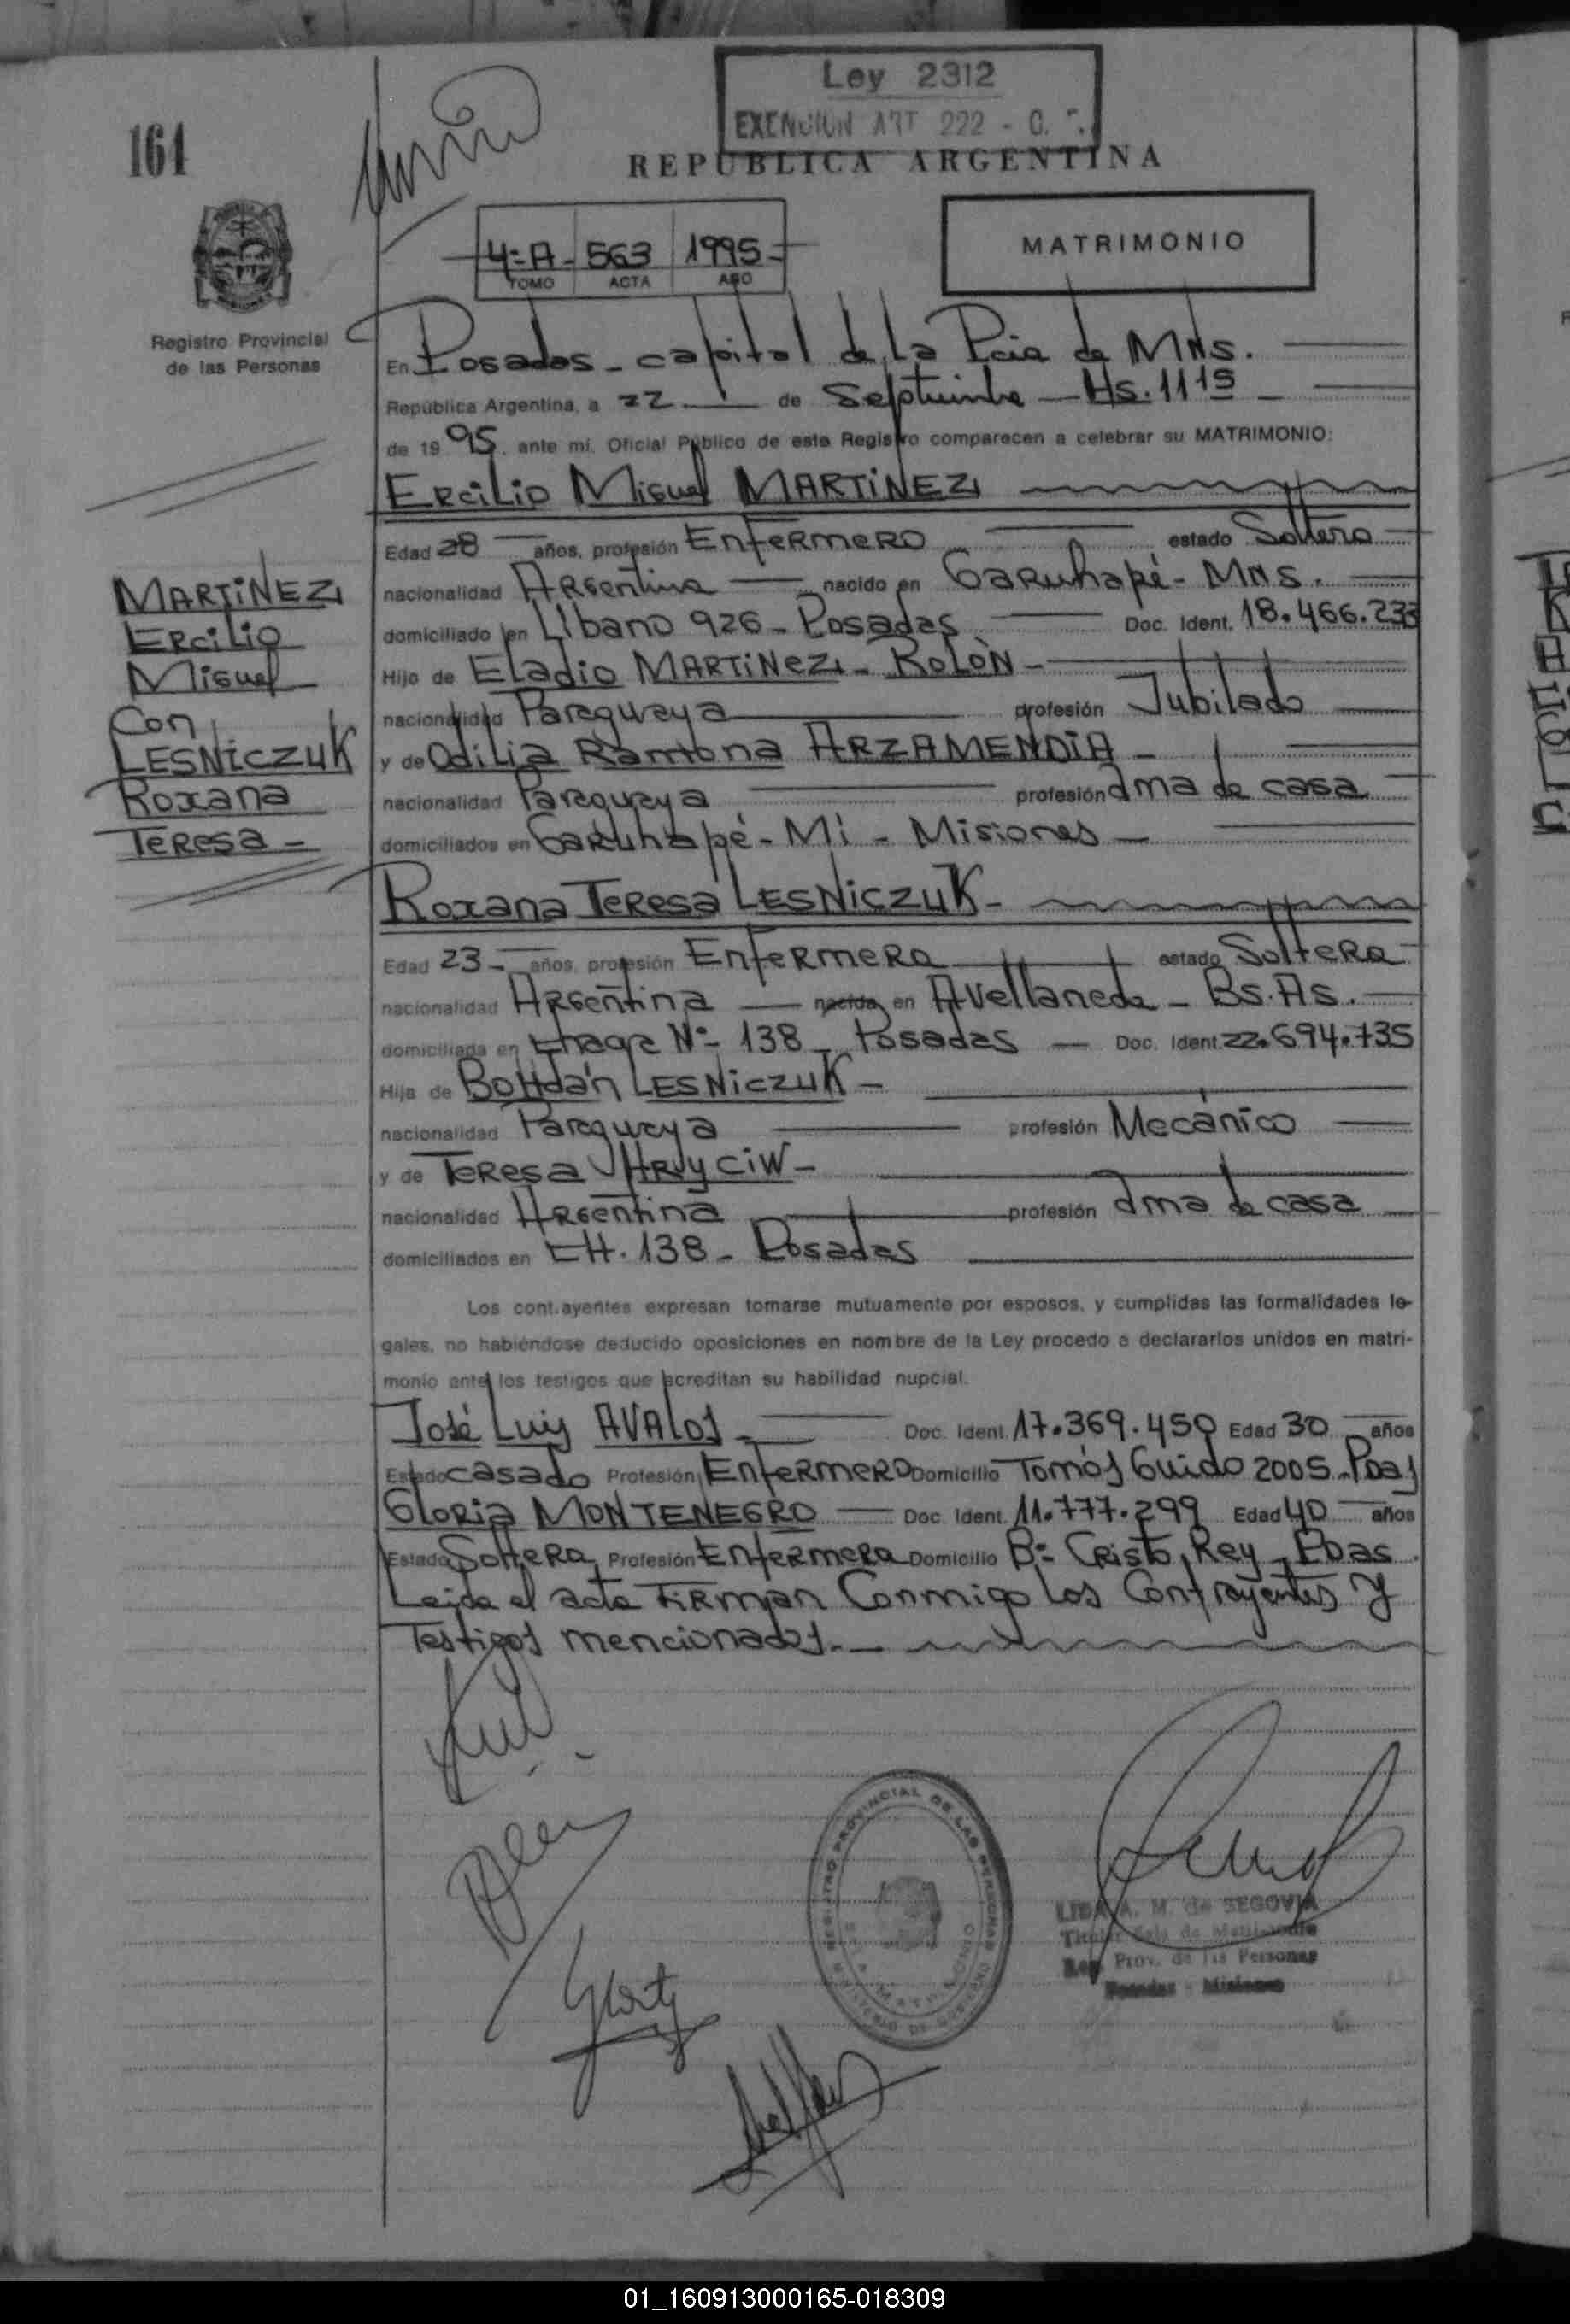 Ley 2312
EXENCION ART 222 - C.
164
REPUBLICA ARGENTINA
4º A - 563 1995 -
TOMO ACTA AÑO
MATRIMONIO
Registro Provincial
de las Personas
En Posadas - capital de la Pcia de Mns.
República Argentina, a 22 de Septiembre Hs. 11 15
de 19 95, ante mí, Oficial Público de este Registro comparecen a celebrar su MATRIMONIO:
Ercilio Miguel MARTINEZ
Edad 28 años, profesión Enfermero estado Soltero
nacionalidad Argentina nacido en Garuhapé - Mns.
domiciliado en Líbano 926 - Posadas Doc. Ident. 18.466.233
Hijo de Eladio MARTINEZ - ROLÓN -
nacionalidad Paraguaya profesión Jubilado
y de Odilia Ramona ARZAMENDIA -
nacionalidad Paraguaya profesión ama de casa
domiciliados en Garuhapé - Mí - Misiones
MARTINEZ
Ercilio
Miguel
Con
LESNICZUK
Roxana
Teresa -
Roxana Teresa LESNICZUK -
Edad 23 - años, profesión Enfermera estado Soltera
nacionalidad Argentina nacida en Avellaneda - Bs. As.
domiciliada en Nº 138 - Posadas Doc. Ident. 22.694.735
Hija de Bohdán LESNICZUK -
nacionalidad Paraguaya profesión Mecánico
y de Teresa HRYCIW -
nacionalidad Argentina profesión ama de casa
domiciliados en CH. 138 - Posadas
Los contrayentes expresan tomarse mutuamente por esposos, y cumplidas las formalidades le-
gales, no habiéndose deducido oposiciones en nombre de la Ley procedo a declararlos unidos en matri-
monio ante los testigos que acreditan su habilidad nupcial.
José Luis AVALOS - Doc. Ident. 17.369.450 Edad 30 años
Estado casado Profesión Enfermero Domicilio Tomás Guido 2005 - Pdas
Gloria MONTENEGRO Doc. Ident. 11.777.299 Edad 40 años
Estado Soltera Profesión Enfermera Domicilio Bº Cristo Rey - Pdas
Leída el acta firman conmigo los contrayentes y
testigos mencionados. -
REGISTRO PROVINCIAL DE LAS PERSONAS
MINISTERIO DE GOBIERNO
A. M. de SEGOVIA
Titular de Matrimonio
Reg. Prov. de las Personas
Posadas - Misiones
01_160913000165-018309